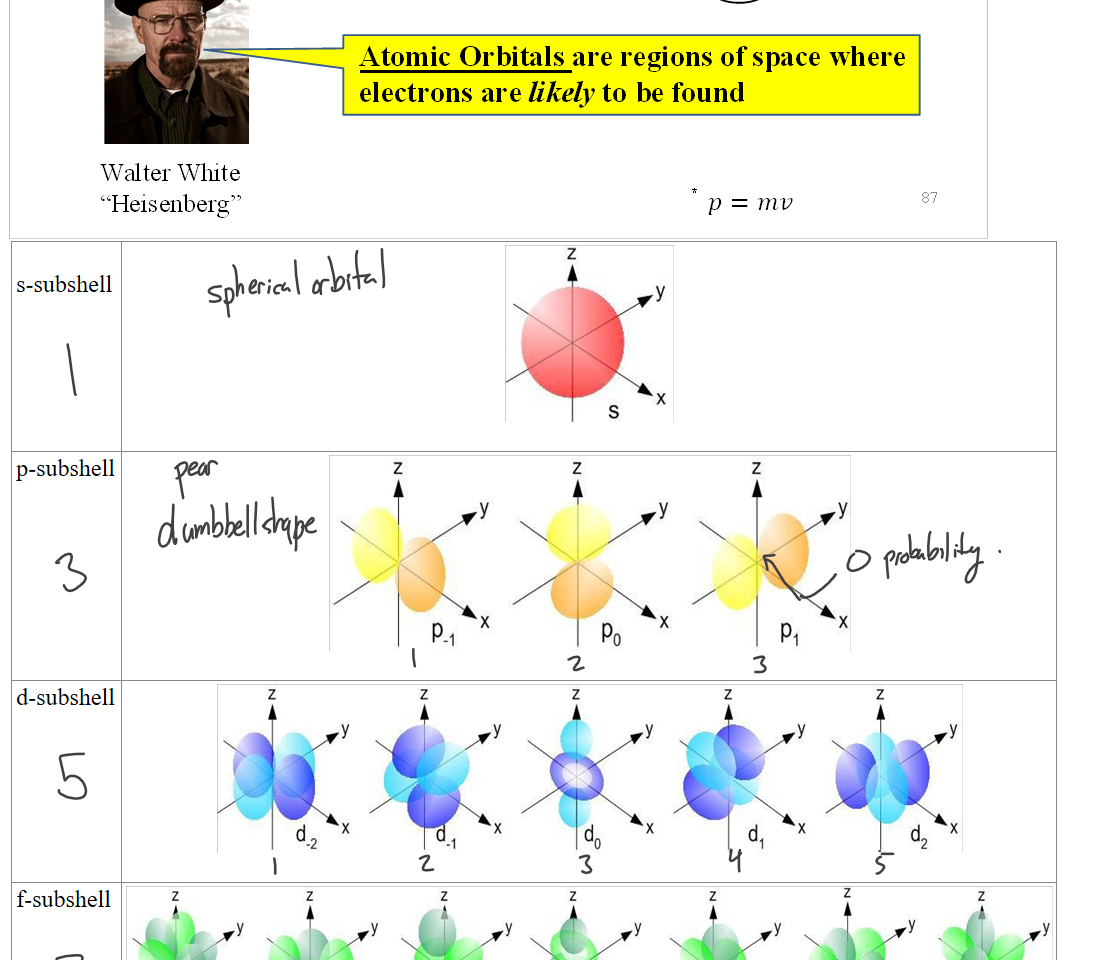 Atomic Orbitals are regions of space where
electrons are likely to be found
Walter White
“Heisenberg”
* p = mv
87
s-subshell
1
spherical orbital
z
y
x
s
p-subshell
3
pear
dumbbell shape
z
y
x
p-1
1
z
y
x
p0
2
z
y
x
p1
3
0 probability.
d-subshell
5
z
y
x
d-2
1
z
y
x
d-1
2
z
y
x
d0
3
z
y
x
d1
4
z
y
x
d2
5
f-subshell
z
y
z
y
z
y
z
y
z
y
z
y
z
y